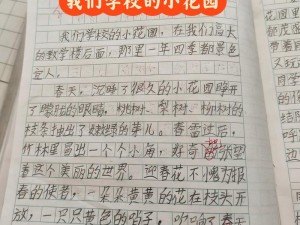 我们学校的小花园
我们学校的小花园，在我们高大
的教学楼后面，那里一年四季都景色
宜人。
春天，沉睡了很久的小花园睁开
了朦胧的眼睛，桃树、梨树、柳树的
枝条抽出了嫩绿的芽儿。春雷过后，
竹林里冒出一个个小海，好奇的张望
着这个美丽的世界。迎春花不愧为报
春的使者，一朵朵黄黄的花在枝头开
放，一只只黄色的